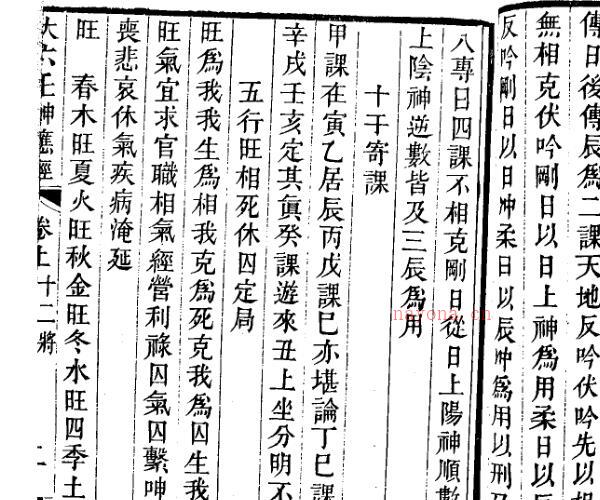 傳日後傳辰爲二課天地反吟伏吟先以
無相克伏吟剛日以日上神爲用柔日以
反吟剛日以日冲柔日以辰冲爲用以刑
八專日四課不相克剛日從日上陽神順數
上陰神逆數皆及三辰爲用
十干寄課
甲課在寅乙居辰丙戊課巳亦堪論丁巳課
辛戌壬亥定其眞癸課遊來丑上坐分明不
五行旺相死休囚定局
旺爲我我生爲相我克爲死克我爲囚生我
旺氣宜求官職相氣經營利祿囚氣囚繫呻
喪悲哀休氣疾病淹延
旺　春木旺夏火旺秋金旺冬水旺四季土
大六壬神應經　卷上　十二將
nayona.cn